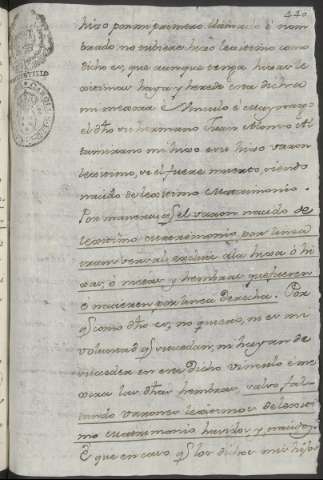 440
hijo por mi primero llamado é nom
brado no uviere hijo lexitimo como
dicho es, que aunque tenga hijas le
xitimas haya y herede esta dicha
mi mexora é Vinculo é Mayorazgo
el dho mi hermano Juan Alonso Al
tamirano mi hijo ó su hijo varon
lexitimo, si el fuere muerto, siendo
nacido de lexitimo Matrimonio.
Por manera q̃ el varon nacido de
lexitimo matrimonio por linea
transversal excluie á la hija ó hi
jas, ó nietas y hembras que fueren
é nacieren por linea derecha. Por
q̃ como dho es, no quiero, ni es mi
voluntad q̃ sucedan, ni hayan de
suceder en este dicho vinculo é me
xora las dhas hembras, salvo fal
tando varones lexitimos de lexiti
mo matrimonio havidos y nacidos.
É que en caso q̃ los dichos mis hijos